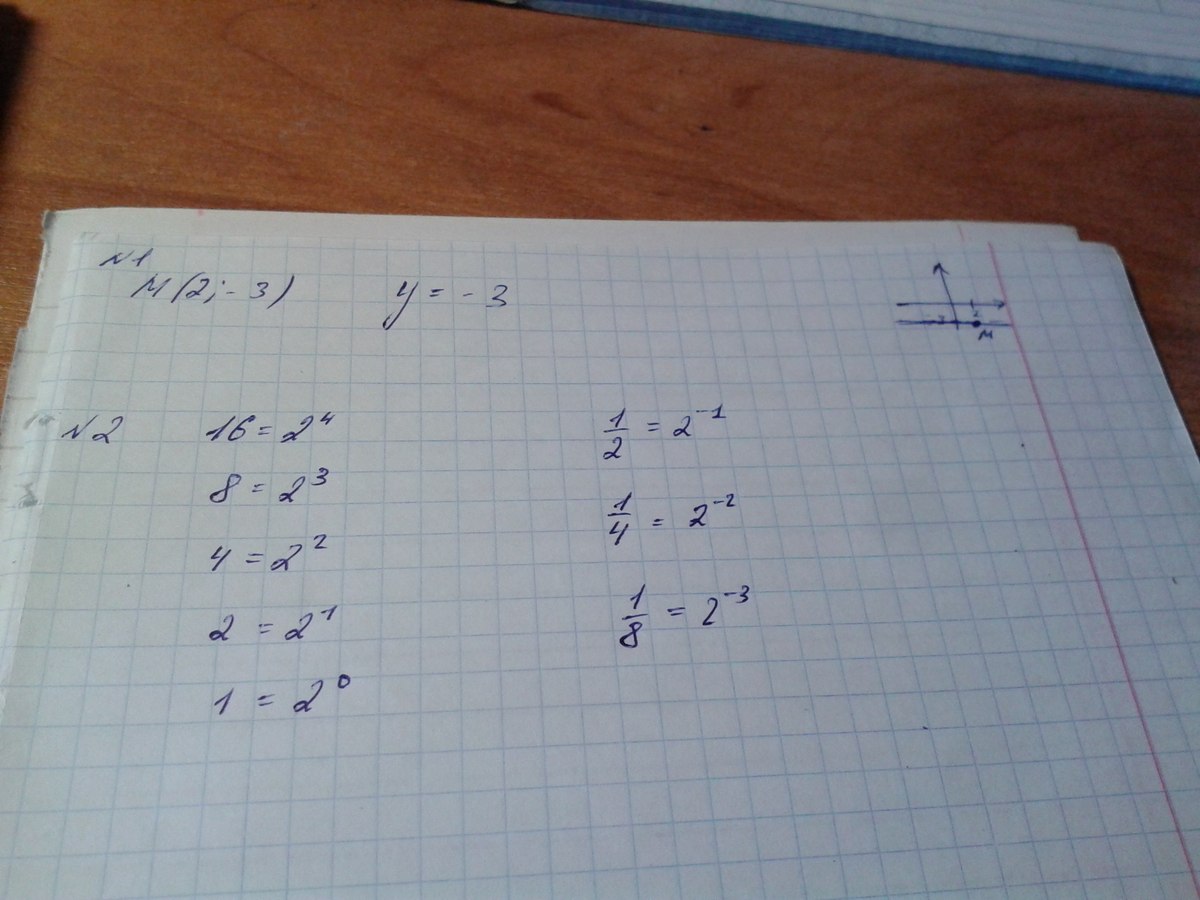 №1
M(2;-3) y = -3
2
-3
M
№2 16 = 2⁴ 1/2 = 2⁻¹
8 = 2³ 1/4 = 2⁻²
4 = 2² 1/8 = 2⁻³
2 = 2¹
1 = 2⁰